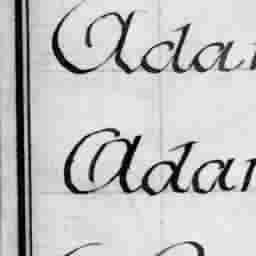 Adam
Adam